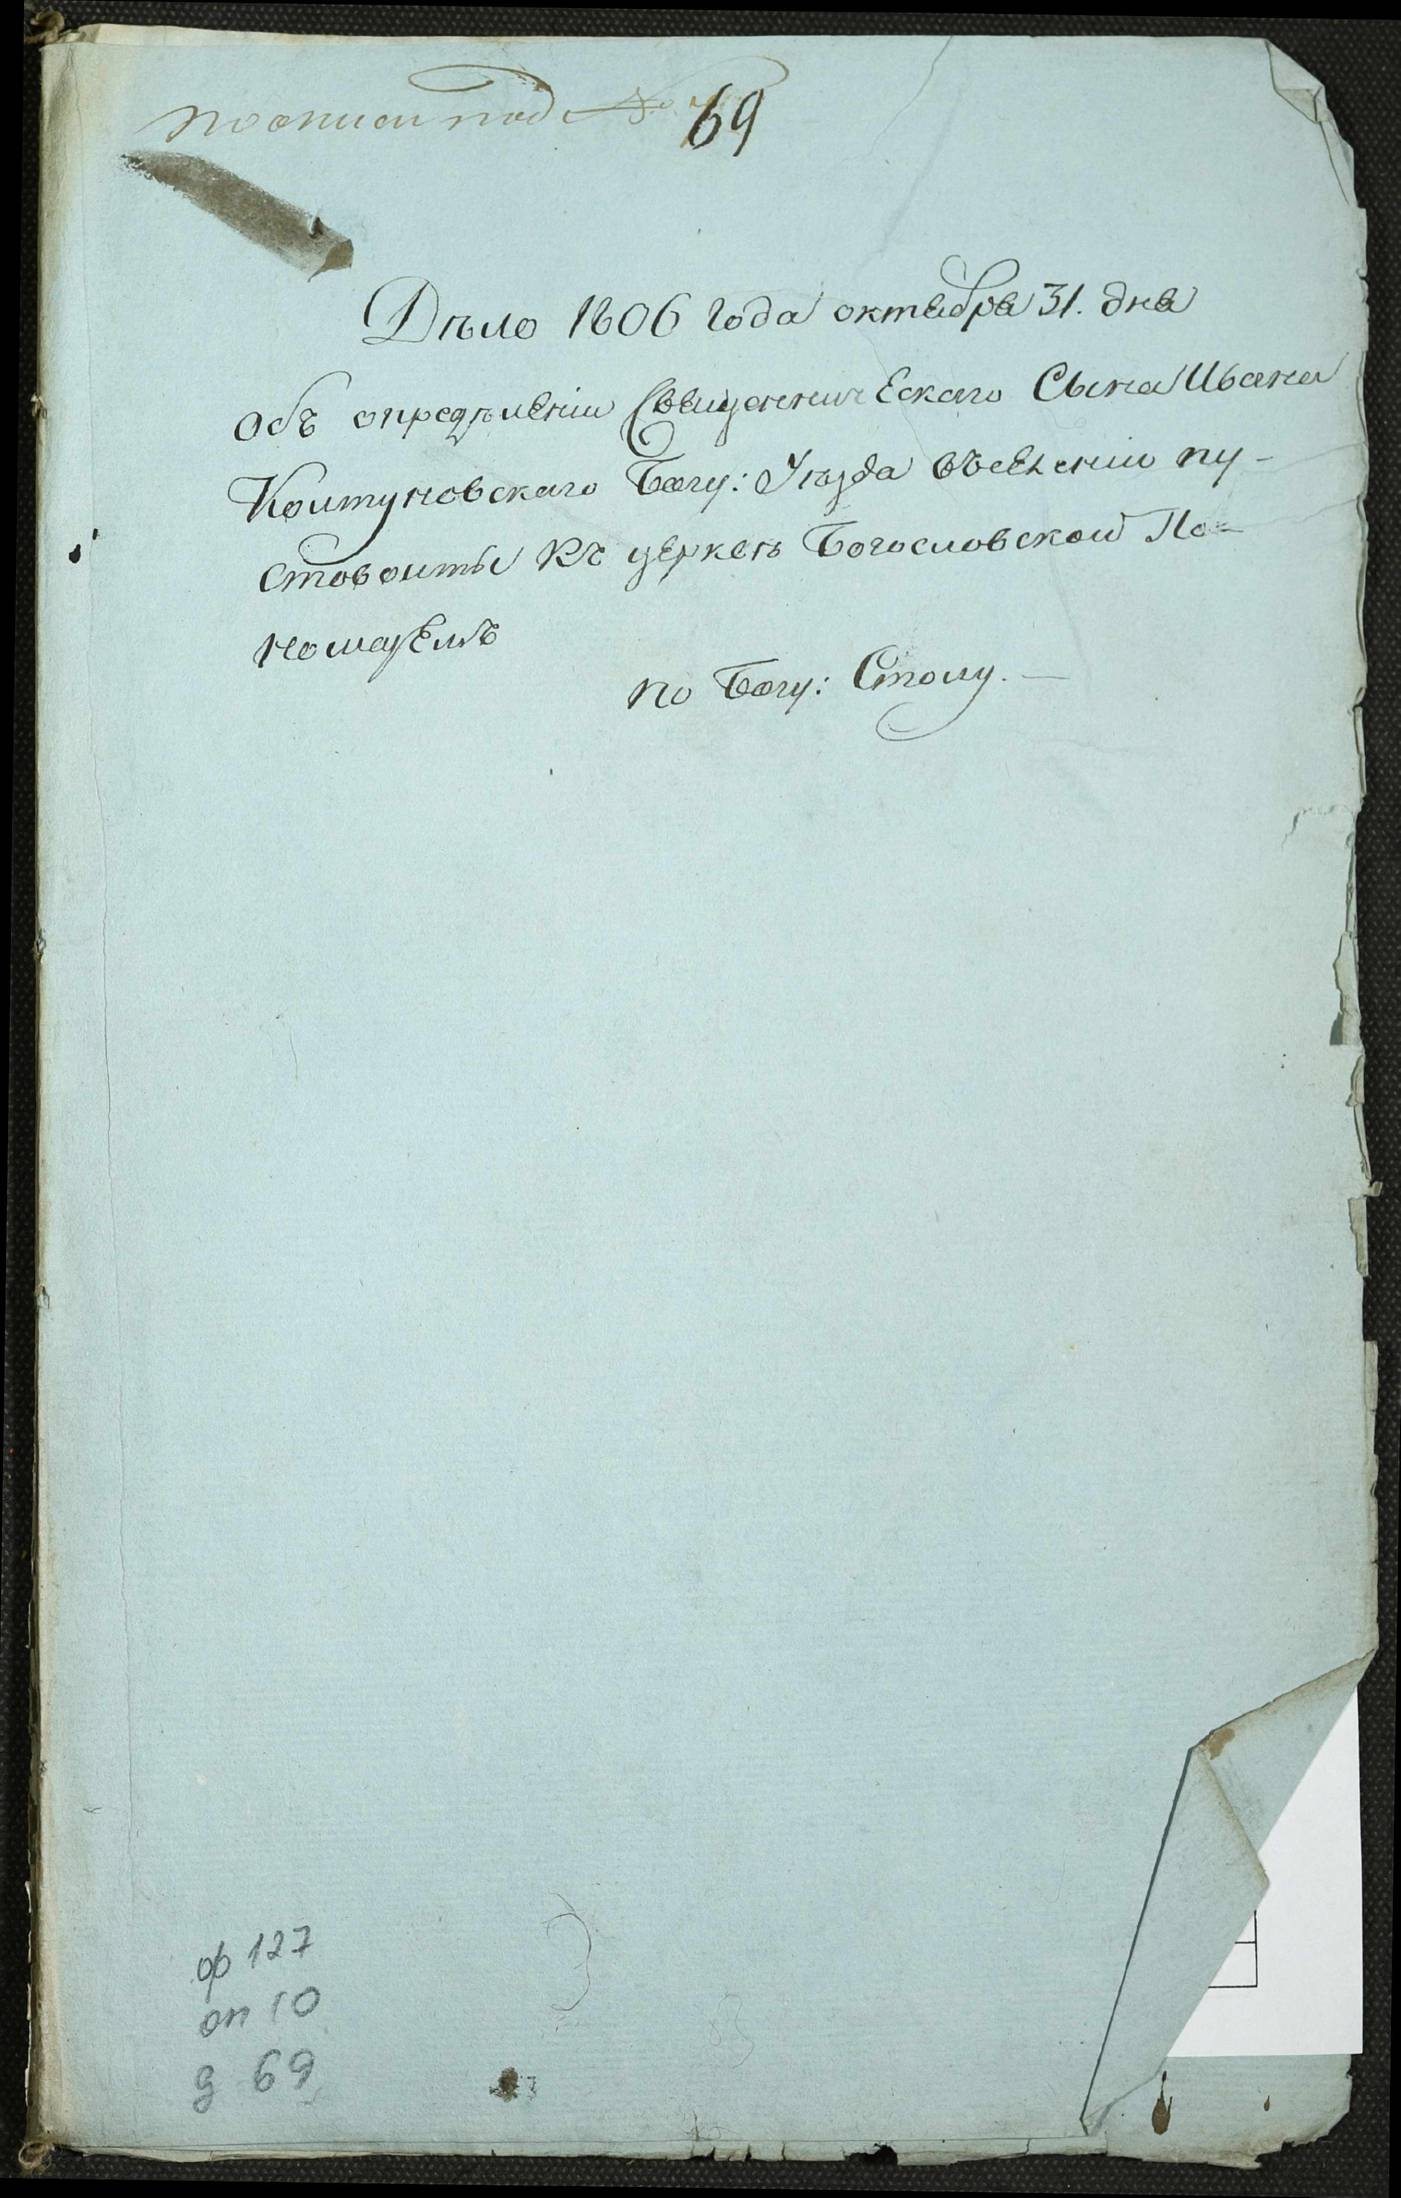 по описи под № 69
Дѣло 1806 года октября 31. дня
Объ опредѣленіи Священническаго Сына Ивана
Колтуновскаго Богу: Уѣзда въ селеніи Пу-
стовойты къ церквѣ Богословской По-
номарѣмъ
по Богу: Столу. —
ф 127
оп 10
д 69